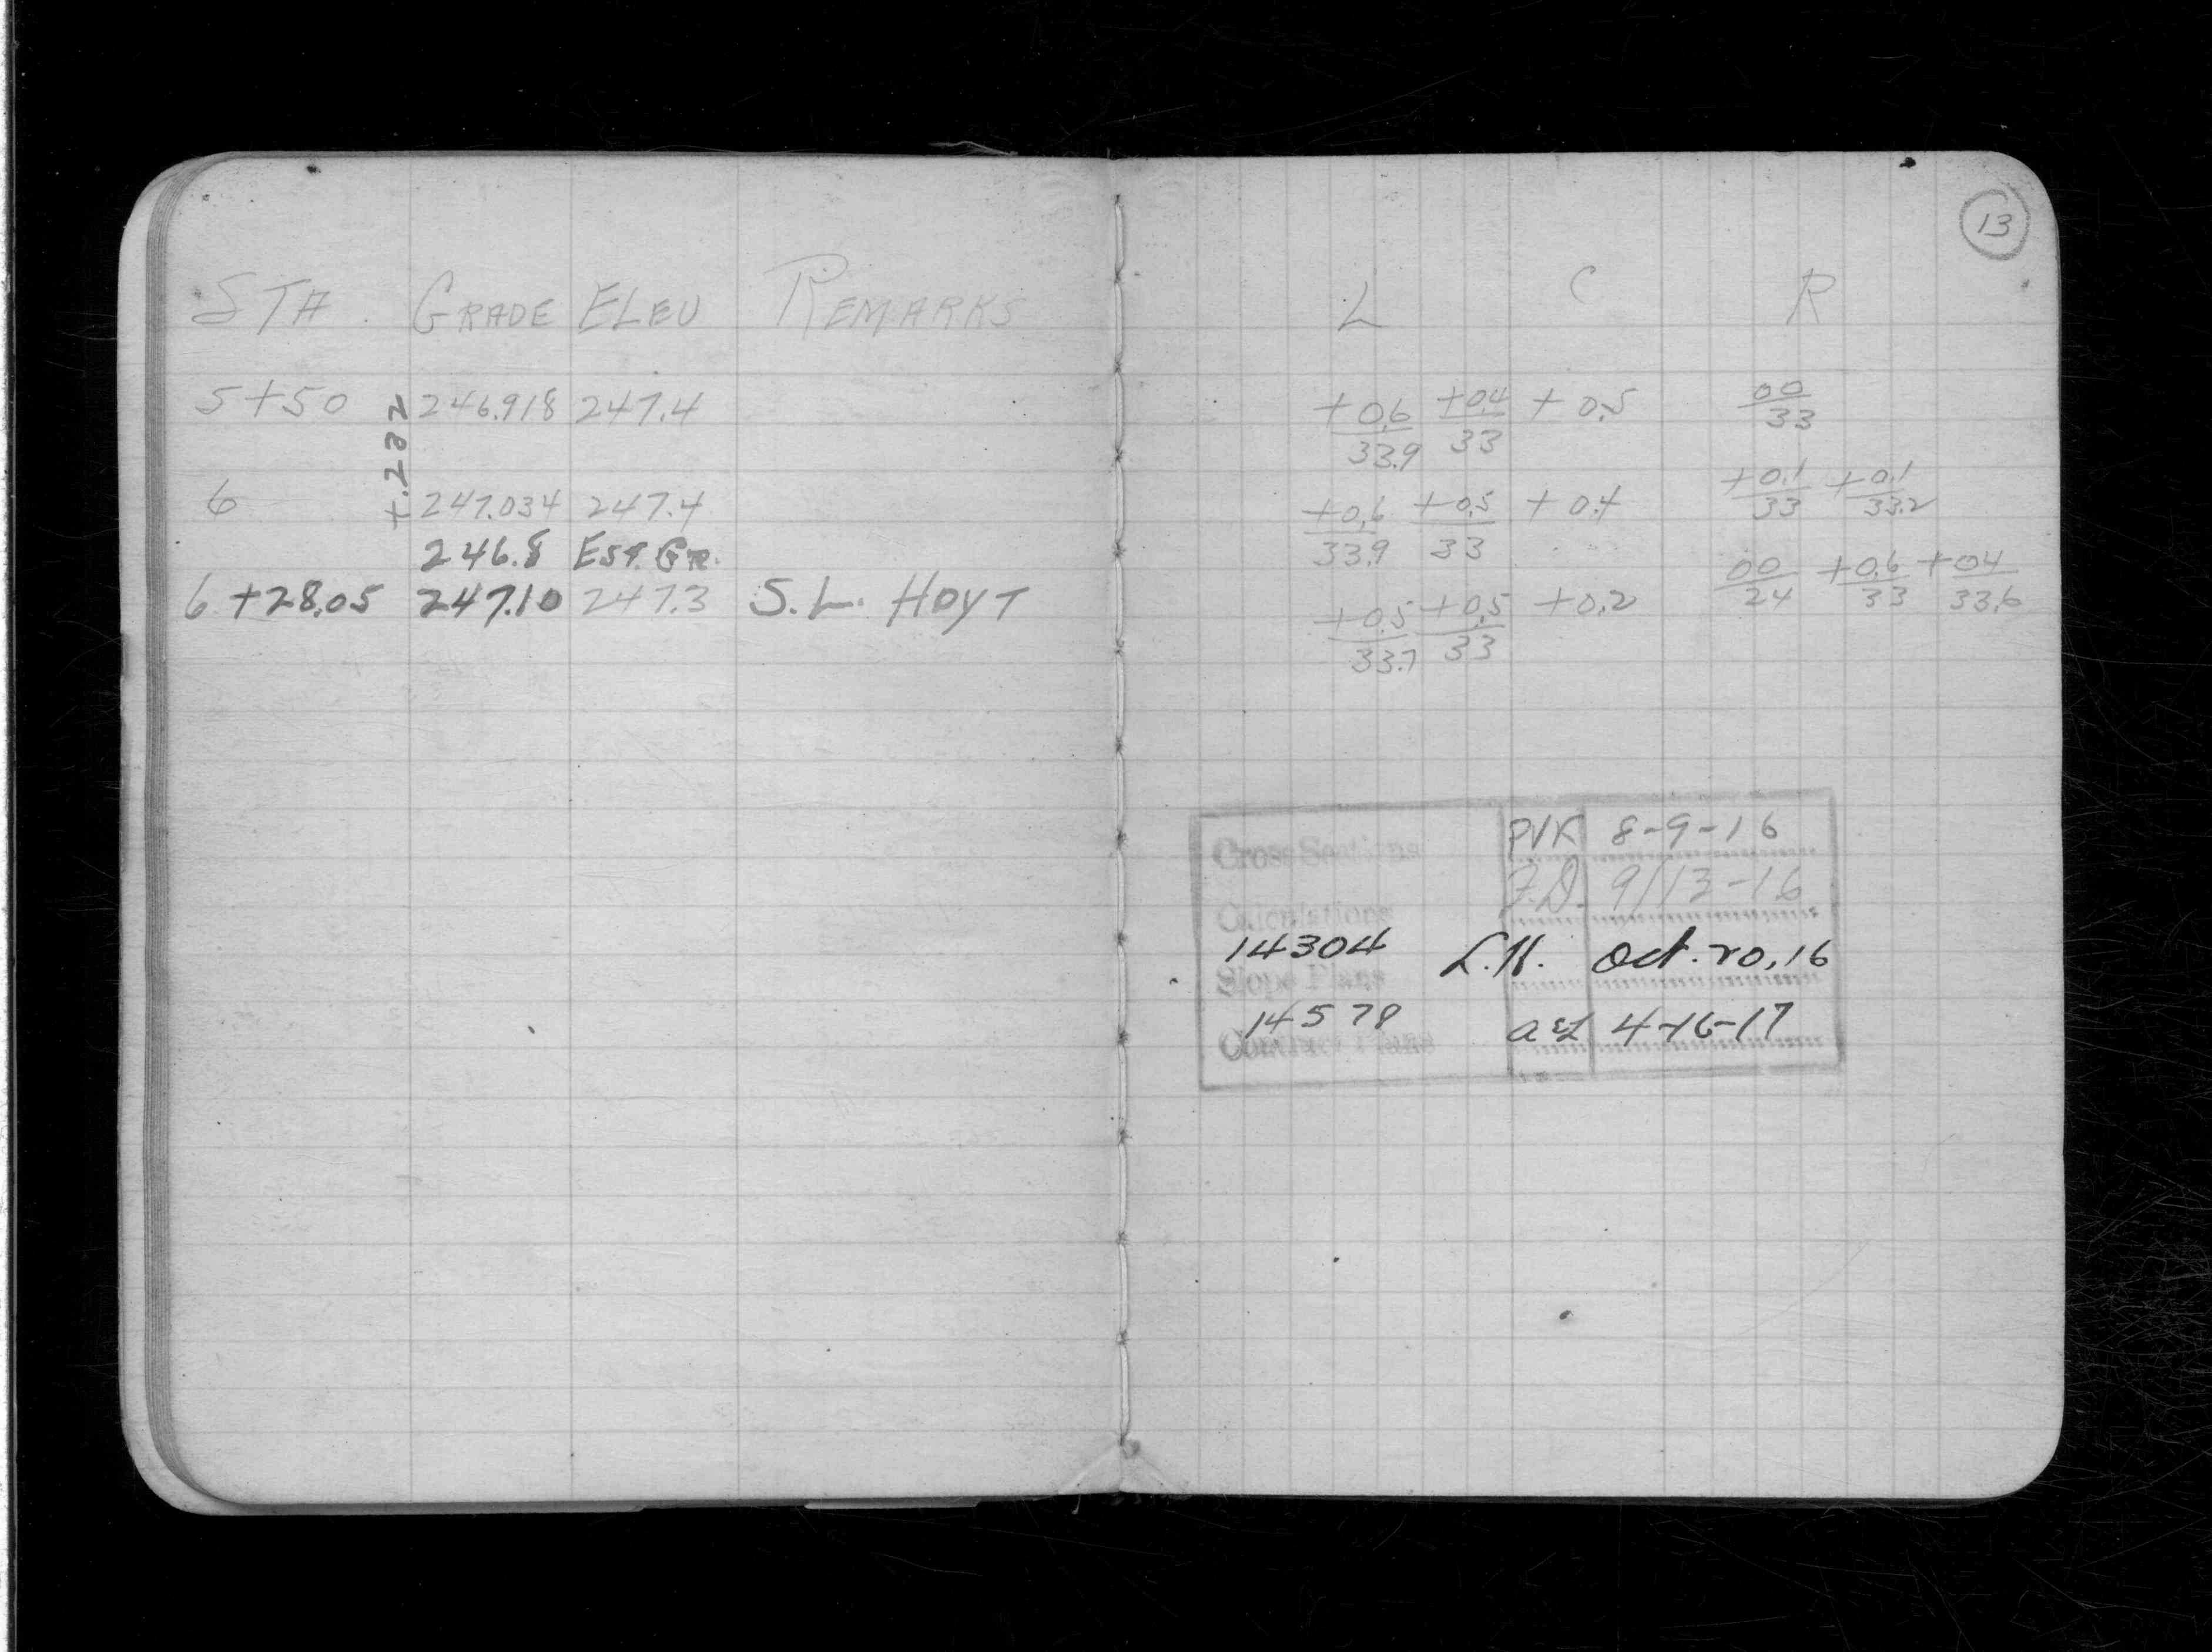 13
STA. GRADE ELEV REMARKS L C R
5+50 246.918 247.4 +0.6/33.9 +0.4/33 +0.5 00/33
+.232
6 247.034 247.4 +0.6/33.9 +0.5/33 +0.4 +0.1/33 +0.1/33.2
246.8 Est. Gr.
6+28.05 247.10 247.3 S.L. HOYT +0.5/33.7 +0.5/33 +0.2 00/24 +0.6/33 +04/33.6
Cross Sections PVK 8-9-16
Calculations F.D. 9/13-16
14304 L.H. Oct. 20, 16
Slope Plans
14578 4-16-17
Contract Plans